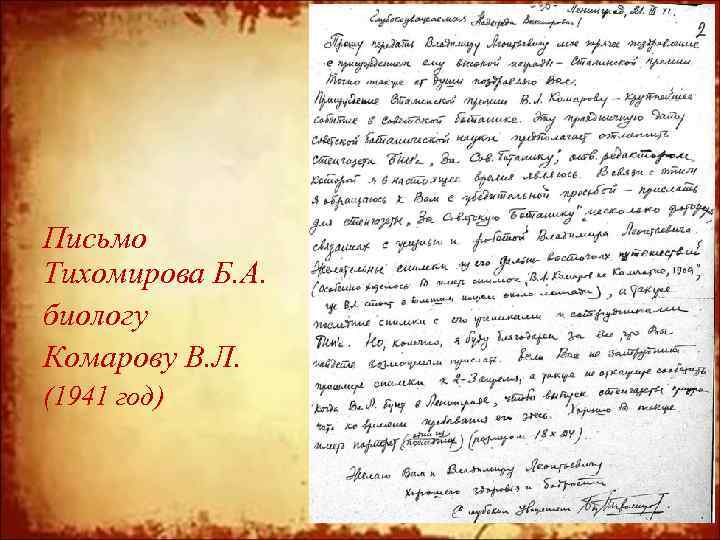 Письмо
Тихомирова Б.А.
биологу
Комарову В.Л.
(1941 год)
Ленинград,
2
Глубокоуважаемая Надежда Викторовна!
Прошу передать Владимиру Леонтьевичу мое горячее поздравление
с присуждением ему высокой награды – Сталинской премии.
Точно также от души поздравляю Вас.
Присуждение Сталинской премии В.Л. Комарову – крупнейшее
событие в советской ботанике. Эту праздничную дату
советской ботанической науки предполагает отметить
стенгазета БИН'а „За Сов. Ботанику", отв. редактором
которой я в настоящее время являюсь. В связи с этим
я обращаюсь к Вам с убедительной просьбой – прислать
для стенгазеты „За Советскую Ботанику" несколько фотографий
связанных с жизнью и работой Владимира Леонтьевича
Желательны снимки из его дальневосточных путешествий
(Особенно хотелось бы снимок „В.Л. Комаров на Камчатке, 1909",
где В.Л. стоит около лошади), а также
последние снимки с его учениками и сотрудниками
БИН'а. Но, конечно, я буду благодарен за все, что Вы
найдете возможным прислать. Если Вас не затруднит
снимки к 2-3 апреля, а также не откажите сообщить
когда В.Л. будет в Ленинграде, чтобы выпуск стенгазеты
ко времени пребывания его здесь. Хорошо бы также
иметь портрет (размером 18 x 24).
Желаю Вам и Владимиру Леонтьевичу
хорошего здоровья и бодрости
С глубоким уважением